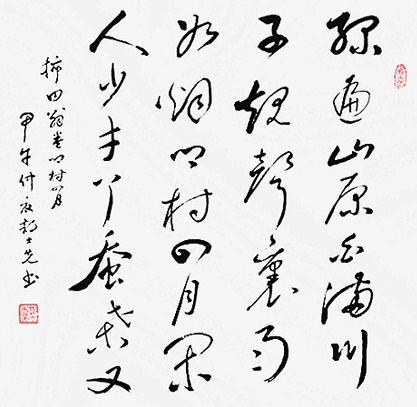 綠遍山原白滿川
子規聲裏雨
如烟乡村四月闲
人少才了蚕桑又
插田 翁卷乡村四月
甲午仲夏士先书